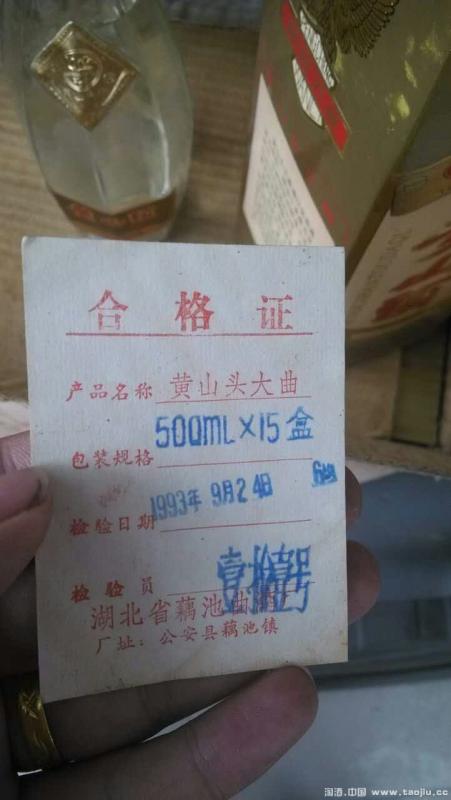 合格证
产品名称 黄山头大曲
包装规格 500ML×15盒
检验日期 1993年9月24日
检验员
湖北省藕池曲酒厂
厂址：公安县藕池镇
淘酒.中国 www.taojiu.cc